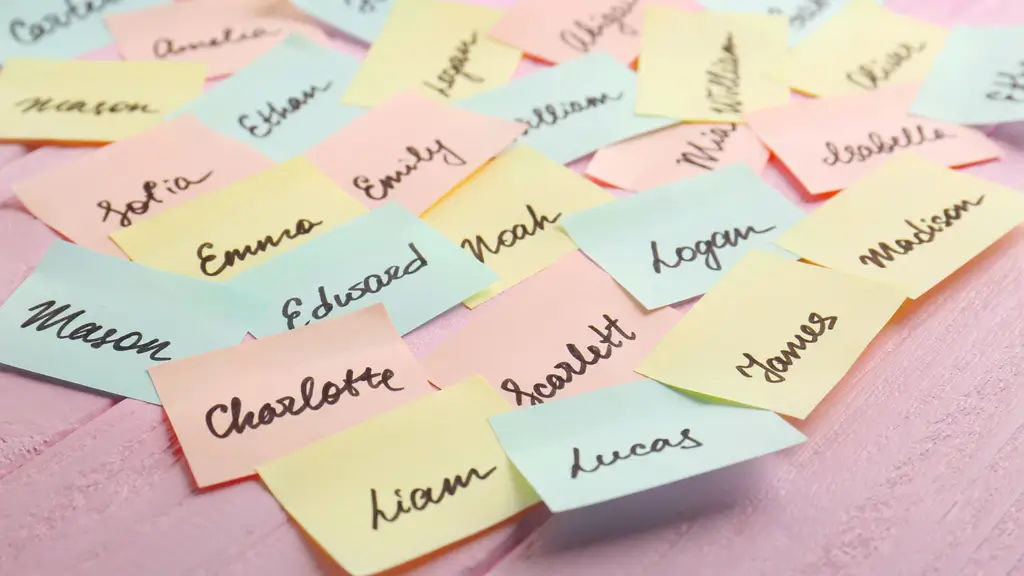 Carter
Amelia
Logan
Abigail
William
Oliver
Mason
Ethan
William
Mia
Isabella
Sofia
Emily
Emma
Noah
Logan
Madison
Edward
Mason
Charlotte
Scarlett
James
Liam
Lucas